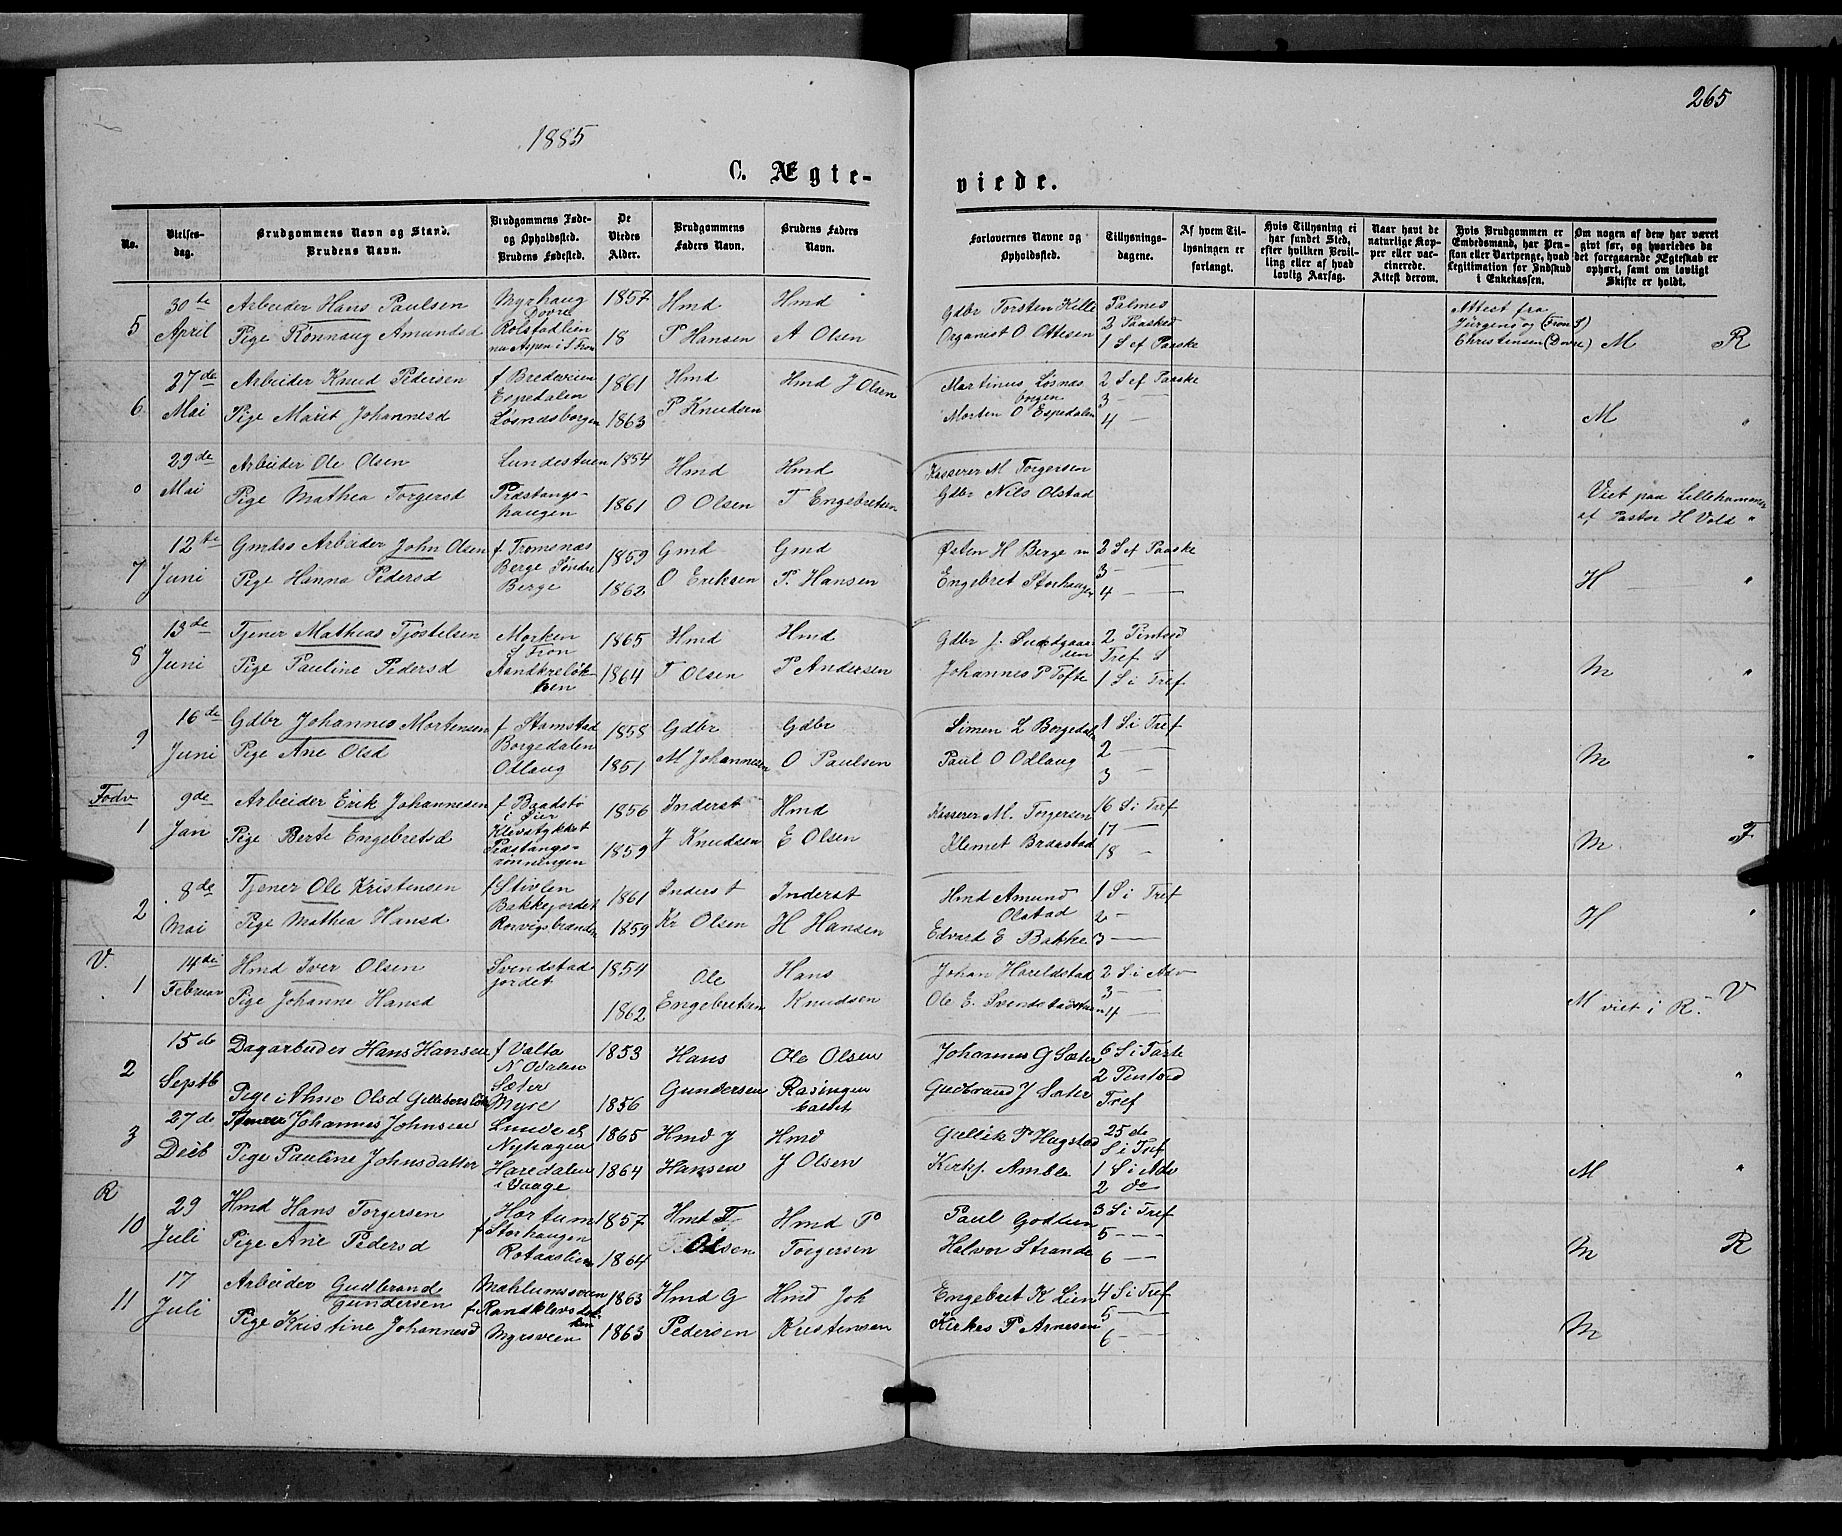 265
1885
C. Ægte-
viede.
No.
Vielses-
dag.
Brudgommens Navn og Stand.
Brudens Navn.
Brudgommens Føde-
og Opholdssted.
Brudens Fødested.
De
Viedes
Alder.
Brudgommens
Faders Navn.
Brudens Faders
Navn.
Forlovernes Navne og
Opholdssted.
Tillysnings-
dagene.
Af hvem Til-
lysningen er
forlangt.
Hvis Tillysning ei
har fundet Sted,
efter hvilken Bevil-
ling eller af hvad
lovlig Aarsag.
Naar havt de
naturlige Kop-
per eller vac-
cinerede.
Attest derom.
Hvis Brudgommen er
Embedsmand, har Pen-
sion eller Vartpenge, hvad
Legitimation for Indskud
i Enkekassen.
Om nogen af dem har været
gift før, og hvorledes da
det foregaaende Ægteskab er
ophørt, samt om lovligt
Skifte er holdt.
5
30te
April
Arbeider Hans Paulsen
Pige Rønnaug Amundsd
Myrhaug
Dovre
Rolstadlien
nu Aspen i S Fron
1857
18
Hmd
P Hansen
Hmd
A Olsen
Gdbr Torsten Kille
Organist O Ottesen
Palmes
2 Paasked
1 S ef Paaske
Attest fra
Jürgens og (Fron S)
Christensen (Dovre)
M
R
6
27de
Mai
Arbeider Knud Pedersen
Pige Marit Johannesd
f Bredeveien
Espedalen
Løsnæsborgen
1861
1863
Hmd
P Knudsen
Hmd J Olsen
Martinus Løsnæs
borgen
Morten O Espedalen
2 S ef Paaske
3 — —
4 —
M
"
0
29de
Mai
Arbeider Ole Olsen
Pige Mathea Torgersd
Lundestuen
Præstangs-
haugen
1854
1861
Hmd
O Olsen
Hmd
T Engebretsen
Kasserer M Torgersen
Gdbr Nils Olstad
Viet paa Lillehammer
af Pastor H Vold "
7
12te
Juni
Gmdss Arbeider John Olsen
Pige Hanna Pedersd
f Tromsnæs
Berge Søndre
Berge
1859
1862
Gmd
O Eriksen
Gmd
P. Hansen
Østen H Berge n
Engebret Storhaugen
2 S ef Paaske
3 — —
4 — —
H
"
8
13de
Juni
Tjener Mathias Tjostelsen
Pige Pauline Pedersd
Morken
S Fron
1865
1864
Hmd
T Olsen
Hmd
P Andersen
Gdbr J.
Johannes P Tofte
2 Pintsd
Tref S
1 S i Tref
M
"
9
16de
Juni
Gdbr Johannes Mortensen
Pige Ane Olsd
f Stamstad
Borgedalen
Odlaug
1858
1851
Gdbr
M Johannesen
Gdbr
O Paulsen
Simen L Borgedalen
Paul O Odlaug
1 S i Tref
2 —
3 —
M
"
Fodv
1
9de
Jan
Arbeider Erik Johannesen
Pige Berte Engebretsd
f Baadstø
i Øier
Klevstykket
Præstangs-
rønningen
1856
1859
Inderst
J Knudsen
Hmd
E Olsen
Kasserer M. Torgersen
Klemet Braastad
16 S i Tref
17 —
18 —
M
F
2
8de
Mai
Tjener Ole Kristensen
Pige Mathea Hansd
f Stivlen
Bakkejordet
Rorvigsbranden
1861
1859
Inderst
Kr Olsen
Inderst
H Hansen
Hmd Amund
Olstad
Edvard E Bakke
1 S i Tref
2 —
3 —
H
"
V.
1
14de
Februar
Hmd Iver Olsen
Pige Johanne Hansd
Svendstad
jordet
1854
1862
Ole
Engebretsen
Hans
Knudsen
Johan Hareldstad
Ole E. Svendstadstuen
2 S i Adv
3 —
4 —
M viet i R.
V
2
15de
Septb
Dagarbeider Hans Hansen
Pige Olsd
f Valta
N Odalen
Sæter
Myre
1853
1856
Hans
Gundersen
Ole Olsen
Johannes G Sæter
Gudbrand J Sæter
6 S i Faste
2 Pintsd
Tref
"
3
27de
Dicb
Johannes Johnsen
Pige Pauline Johnsdatter
Lunde
Nyhagen
Haredalen
i Vaage
1865
1864
Hmd J
Hansen
Hmd
J Olsen
Gullik P Hugstad
Kirkj. Amble
25de
S i Tref
1 S i Adv
2 do
M
"
R
10
29
Juli
Hmd Hans Torgersen
Pige Ane Pedersd
Hortum
f Storhaugen
Rotaaslien
1857
1864
Hmd T
Olsen
Hmd P
Torgersen
Paul Godlien
Halvor Strande
3 S i Tref
5 — —
6 —
M
R
11
17
Juli
Arbeider Gudbrand
Gundersen
Pige Kristine Johannesd
Mahlumsveen
f Randklevs
Myrsveen
1863
1863
Hmd G
Pedersen
Hmd Joh
Kristensen
Engebret K Lien
Kirkes P Arnesen
4 S i Tref
5 —
6 —
M